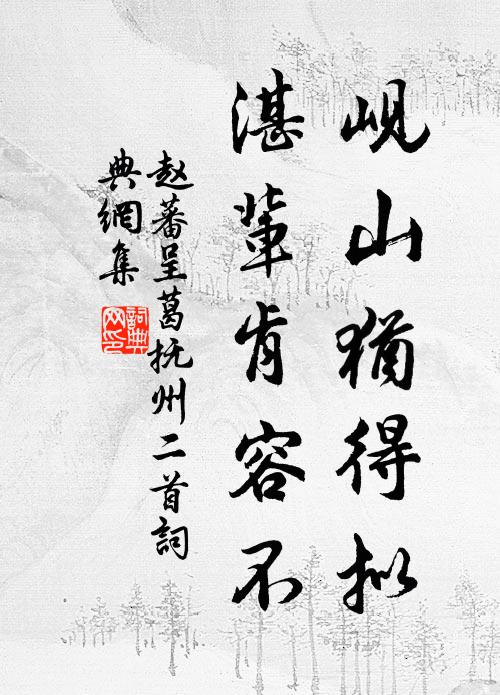 岘山犹得拟
湛辈肯容不
赵蕃呈葛抚州二首词
典網集
詞典
网印